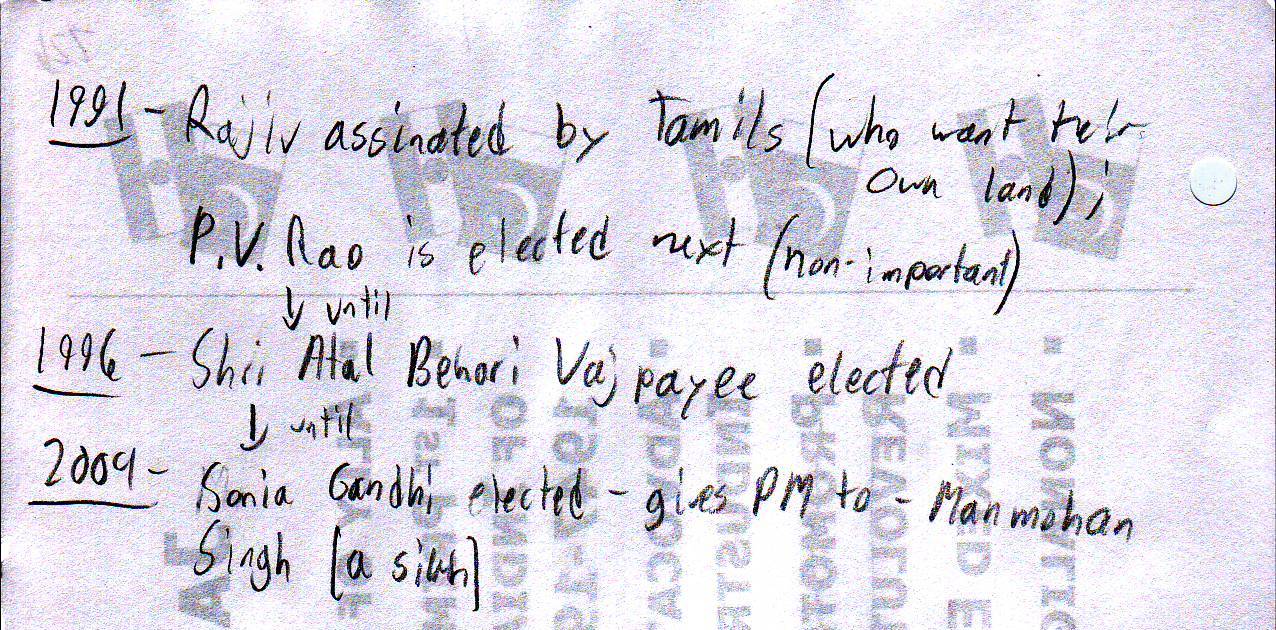 1991 - Rajiv assinated by Tamils (who want their
own land);
P.V. Rao is elected next (non-important)
↓ until
1996 - Shri Atal Behari Vajpayee elected
↓ until
2004 - Sonia Gandhi elected - gives PM to - Manmohan
Singh [a sikh]